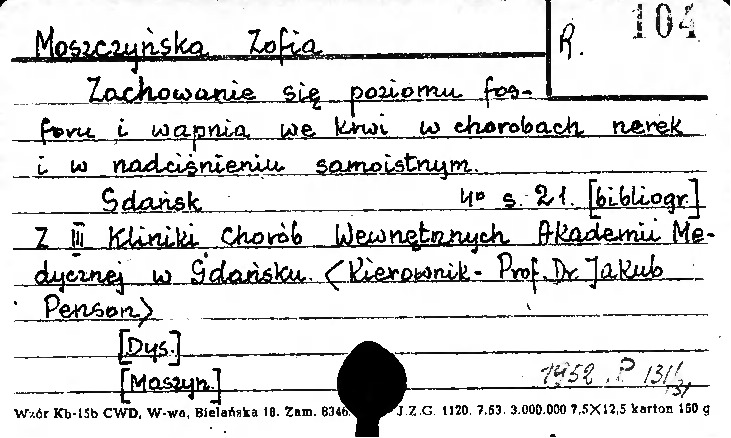 Moszczyńska Zofia
R. 104
Zachowanie się poziomu fos-
foru i wapnia we krwi w chorobach nerek
i w nadciśnieniu samoistnym.
Gdańsk 4° s. 21. [bibliogr.]
Z III Kliniki Chorób Wewnętrznych Akademii Me-
dycznej w Gdańsku. <Kierownik - Prof. Dr. Jakub
Penson>
[Dys.]
[Maszyn.]
1952. P 131/
Wzór Kb-15b CWD, W-wa, Bielańska 18. Zam. 8346 J.Z.G. 1120. 7.53. 3.000.000 7,5×12,5 karton 160 g